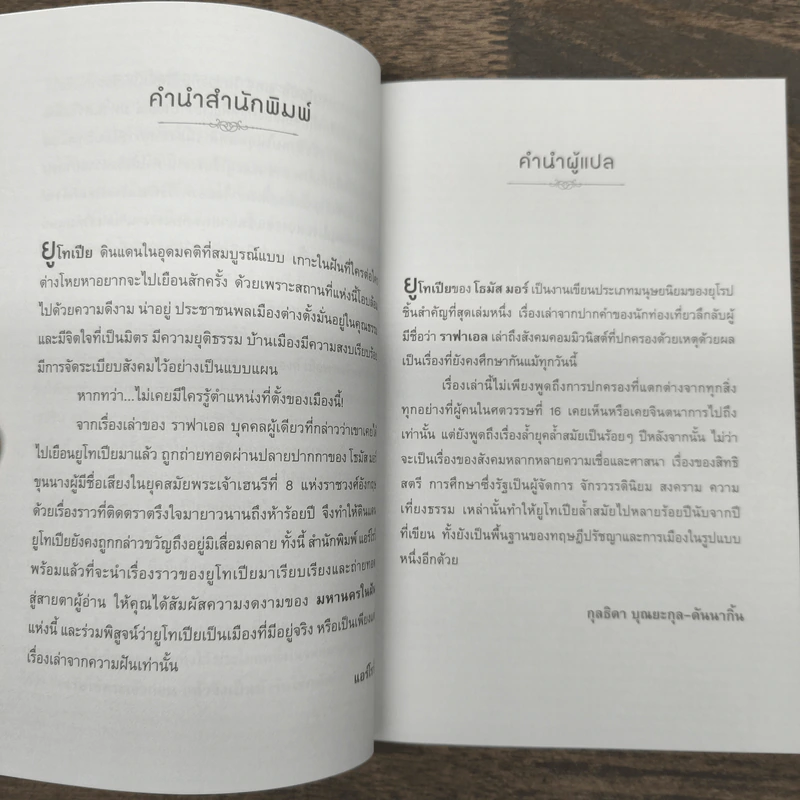 คำนำสำนักพิมพ์
ยูโทเปีย ดินแดนในอุดมคติที่สมบูรณ์แบบ เกาะในฝันที่ใครต่อใคร
ต่างโหยหาอยากจะไปเยือนสักครั้ง ด้วยเพราะสถานที่แห่งนี้โอบล้อม
ไปด้วยความดีงาม น่าอยู่ ประชาชนพลเมืองต่างตั้งมั่นอยู่ในคุณธรรม
และมีจิตใจที่เป็นมิตร มีความยุติธรรม บ้านเมืองมีความสงบเรียบร้อย
มีการจัดระเบียบสังคมไว้อย่างเป็นแบบแผน
หากทว่า...ไม่เคยมีใครรู้ตำแหน่งที่ตั้งของเมืองนี้!
จากเรื่องเล่าของ ราฟาเอล บุคคลผู้เดียวที่กล่าวว่าเขาเคยได้
ไปเยือนยูโทเปียมาแล้ว ถูกถ่ายทอดผ่านปลายปากกาของ โธมัส มอร์
ขุนนางผู้มีชื่อเสียงในยุคสมัยพระเจ้าเฮนรีที่ 8 แห่งราชวงศ์อังกฤษ
ด้วยเรื่องราวที่ติดตราตรึงใจมายาวนานถึงห้าร้อยปี จึงทำให้ดินแดน
ยูโทเปียยังคงถูกกล่าวขวัญถึงอยู่มิเสื่อมคลาย ทั้งนี้ สำนักพิมพ์ แอร์โรว์
พร้อมแล้วที่จะนำเรื่องราวของยูโทเปียมาเรียบเรียงและถ่ายทอด
สู่สายตาผู้อ่าน ให้คุณได้สัมผัสความงดงามของ มหานครในฝัน
แห่งนี้ และร่วมพิสูจน์ว่ายูโทเปียเป็นเมืองที่มีอยู่จริง หรือเป็นเพียงแค่
เรื่องเล่าจากความฝันเท่านั้น
แอร์โรว์
คำนำผู้แปล
ยูโทเปียของ โธมัส มอร์ เป็นงานเขียนประเภทมนุษยนิยมของยุโรป
ชิ้นสำคัญที่สุดเล่มหนึ่ง เรื่องเล่าจากปากคำของนักท่องเที่ยวลึกลับผู้
มีชื่อว่า ราฟาเอล เล่าถึงสังคมคอมมิวนิสต์ที่ปกครองด้วยเหตุด้วยผล
เป็นเรื่องที่ยังคงศึกษากันแม้ทุกวันนี้
เรื่องเล่านี้ไม่เพียงพูดถึงการปกครองที่แตกต่างจากทุกสิ่ง
ทุกอย่างที่ผู้คนในศตวรรษที่ 16 เคยเห็นหรือเคยจินตนาการไปถึง
เท่านั้น แต่ยังพูดถึงเรื่องล้ำยุคล้ำสมัยเป็นร้อยๆ ปีหลังจากนั้น ไม่ว่า
จะเป็นเรื่องของสังคมหลากหลายความเชื่อและศาสนา เรื่องของสิทธิ
สตรี การศึกษาซึ่งรัฐเป็นผู้จัดการ จักรวรรดินิยม สงคราม ความ
เที่ยงธรรม เหล่านั้นทำให้ยูโทเปียล้ำสมัยไปหลายร้อยปีนับจากปี
ที่เขียน ทั้งยังเป็นพื้นฐานของทฤษฎีปรัชญาและการเมืองในรูปแบบ
หนึ่งอีกด้วย
กุลธิดา บุณยะกุล-ดันนากิ้น